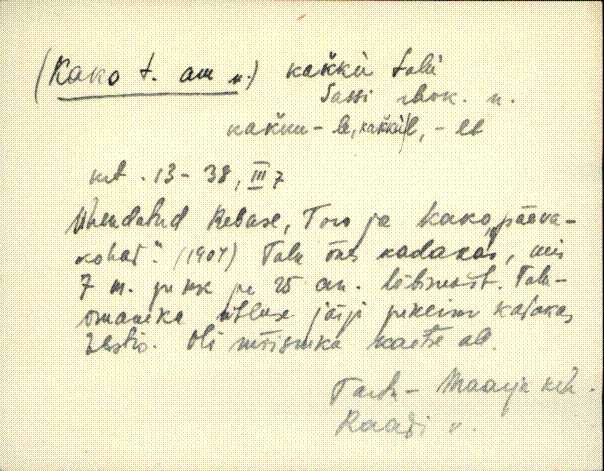 (Kako t. am n.) kakkü talu
Sassi skok. n.
kakku - le, kakkül, - lt
mt. 13 - 38, III 7
Ühendatud Rebase, Toro ja Kako „päeva-
kohad". (1904) Talu õues kadakas, mis
7 m. pikk ja 25 cm. läbimõõt. Talu-
omaniku ütluse järgi pikeim kadakas
Eestis. Oli mõisniku kaitse all.
Tartu - Maarja khk.
Raadi v.